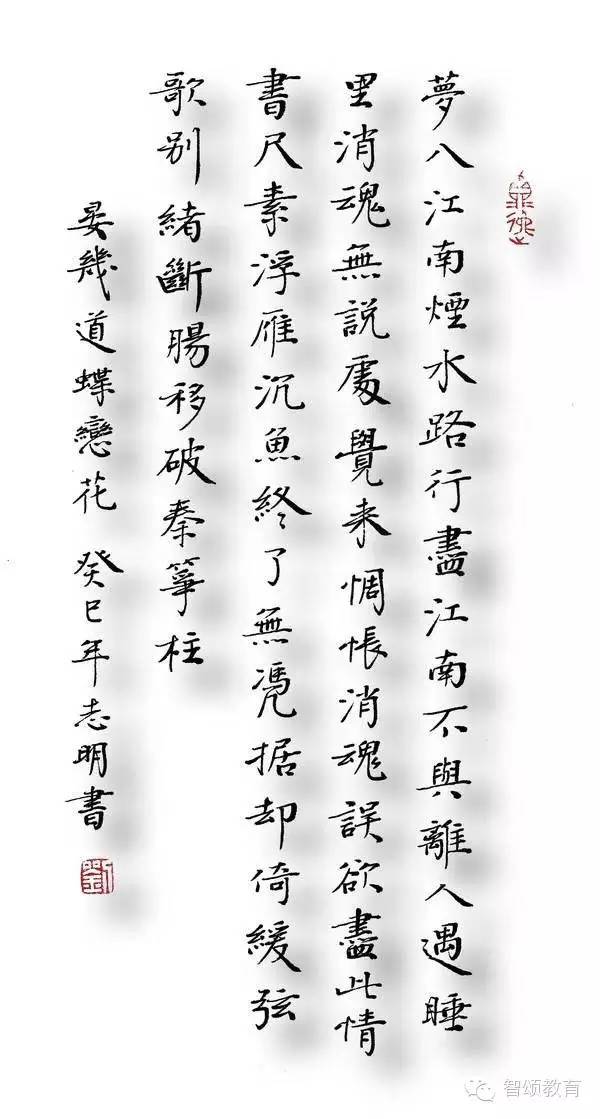 夢入江南煙水路行盡江南不與離人遇睡
里消魂無説處覺来惆悵消魂誤欲盡此情
書尺素浮雁沉魚終了無憑据却倚緩弦
歌别緒斷腸移破秦箏柱
晏幾道蝶戀花 癸巳年志明書
劉
智颂教育